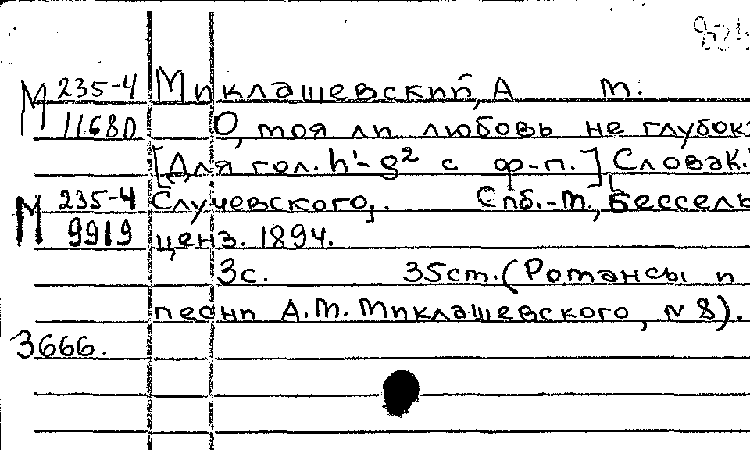 М 235-4 Миклашевский, А М.
11680 О, моя ли любовь не глубока
[Для гол. h¹-g² с ф-п.] Слова К.
М 235-4 Случевского. Спб.-М., Бессель
9919 ценз. 1894.
3с. 35ст. (Романсы и
песни А.М. Миклашевского, № 8).
3666.